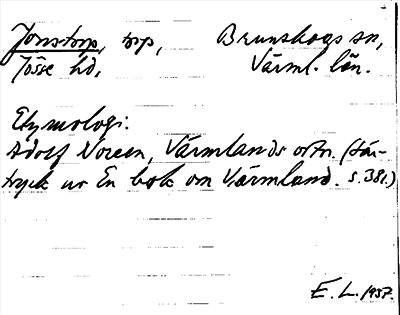 Jonstorp, torp, Brunskogs sn,
Jösse hd, Värml. län.
Etymologi:
Adolf Noreen, Värmlands ortn. (Sär-
tryck ur En bok om Värmland. s. 381.)
E. L. 1937.